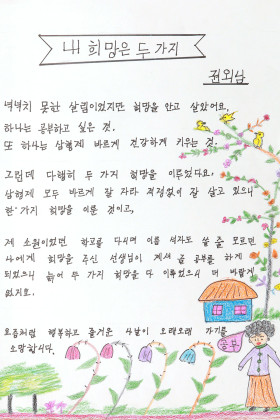 내 희망은 두 가지
권외남
넉넉치 못한 살림이었지만 희망을 안고 살았어요,
하나는 공부하고 싶은 것.
또 하나는 삼형제 바르게 건강하게 키우는 것.
그런데 다행히 두 가지 희망을 이루었다요.
삼형제 모두 바르게 잘 자라 걱정없이 잘 살고 있으니
한 가지 희망을 이룬 것이고,
제 소원이었던 학교를 다니며 이름 석자도 쓸 줄 모르던
나에게 희망을 주신 선생님이 계셔 글 공부를 하게
되었으니 늙어 두 가지 희망을 다 이루었으니 더 바랄게
없지요.
요즘처럼 행복하고 즐거운 나날이 오래오래 가기를
소망합니다.
공부